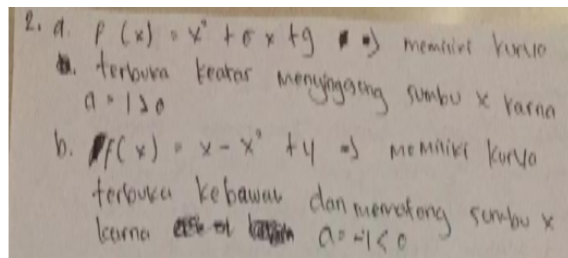 2. a. f(x) = x² + 6x + 9 => memiliki kurva
terbuka keatas menyinggung sumbu x karna
a = 1 > 0
b. f(x) = x - x² + 4 => memiliki kurva
terbuka kebawah dan memotong sumbu x
karna a = -1 < 0